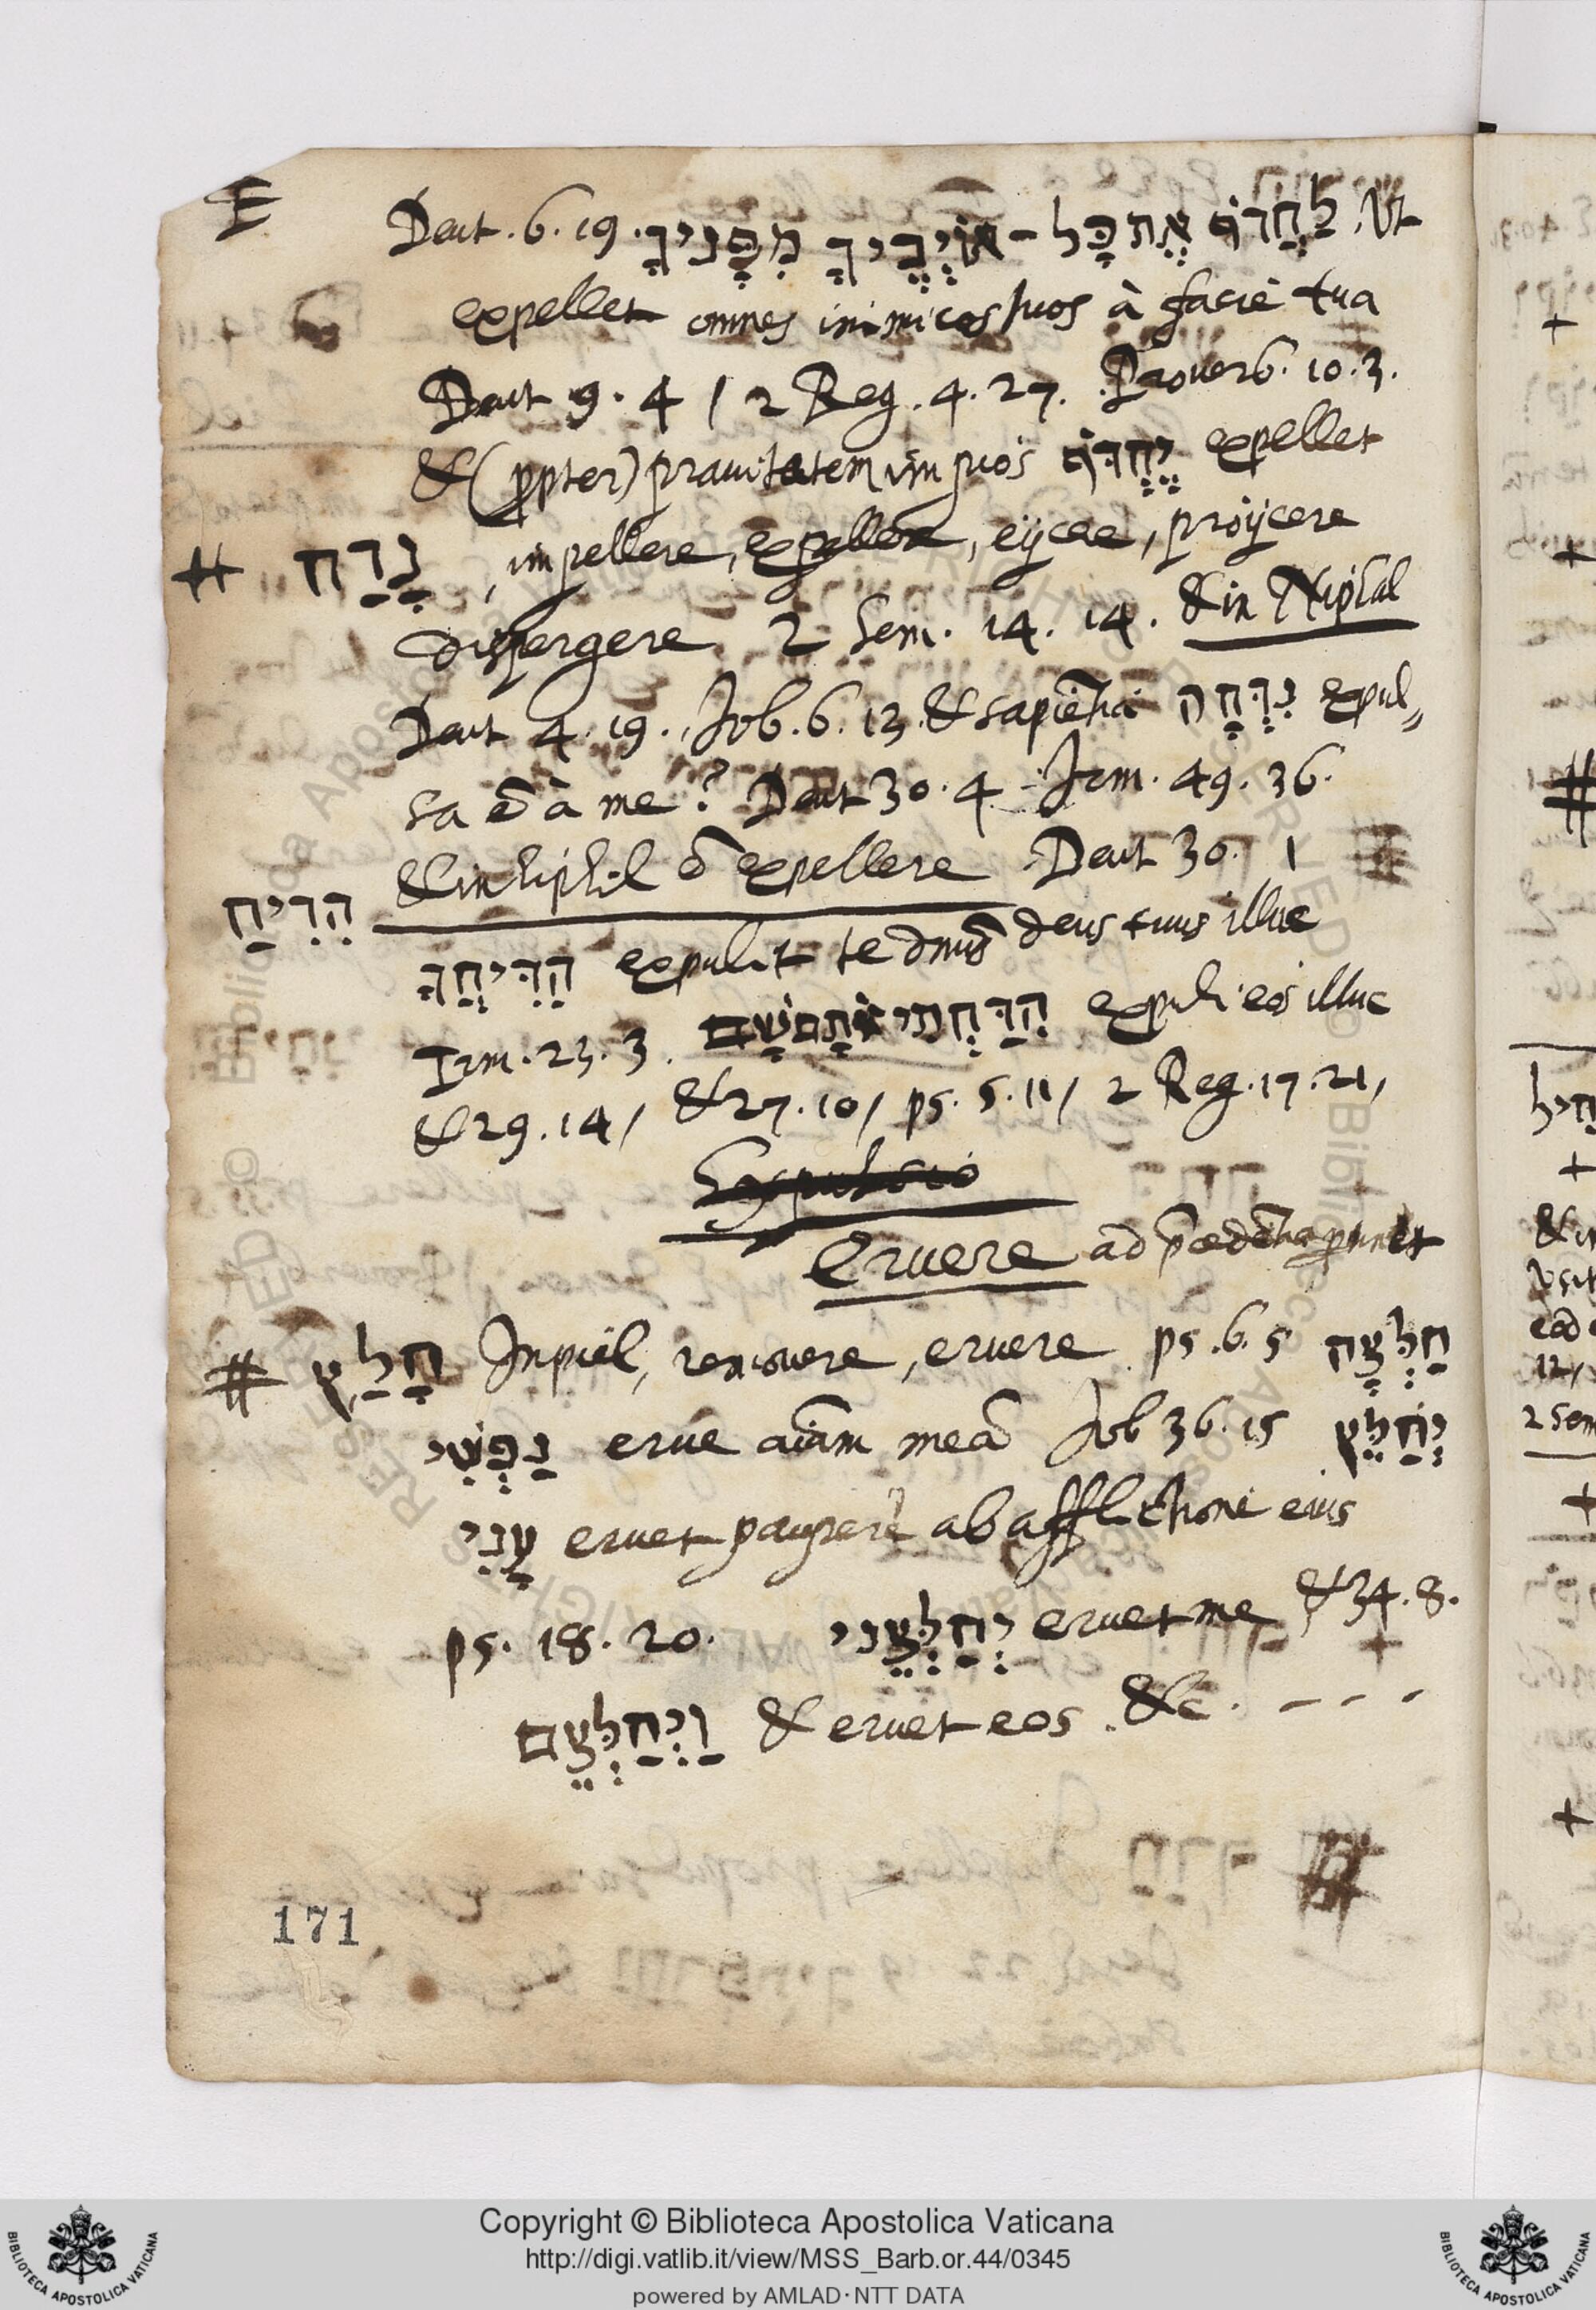 E
Deut. 6. 19. לַחֲדֹף אֶת כָּל־אוֹיְבֶיךָ מִפָּנֶיךָ. Ut
expellet omnes inimicos tuos à facie tua
Deut 9. 4 / 2 Reg. 4. 27. Proverb. 10. 3.
& (ppter) pravitatem impios יֶהֱדֹּף expellet
# נָדַח, impellere, expellere, eijcere, proijcere
dispergere 2 Sem. 14. 14. & in Niphal
Deut 4. 19. Job. 6. 13. & sapiẽtia נִדְּחָה expul„
sa ẽ à me? Deut 30. 4 Irm. 49. 36.
הִדִיחַ & in hiphil ẽ expellere Deut 30. 1
הִדִּיחֲךָ expulit te dnus deus tuus illuc
Irm. 23. 3. הִדַּחְתִּי אֹתָם שָׁם expuli eos illuc
& 29. 14 / & 27. 10 / ps. 5. 11 / 2 Reg. 17. 21,
Expulsio
Eruere ad præcedẽtia ptinet
# חָלַץ In piel, removere, eruere ps. 6. 5 חַלְּצָה
נַפְשִׁי erue aiam meã Job 36. 15 יְחַלֵּץ
עָנִי eruet pauperẽ ab afflictione eius
ps. 18. 20. יְחַלְּצֵנִי eruet me & 34. 8.
וַיְחַלְּצֵם & eruet eos. &c. - - -
171
Copyright © Biblioteca Apostolica Vaticana
http://digi.vatlib.it/view/MSS_Barb.or.44/0345
powered by AMLAD · NTT DATA
BIBLIOTECA APOSTOLICA VATICANA
BIBLIOTECA APOSTOLICA VATICANA